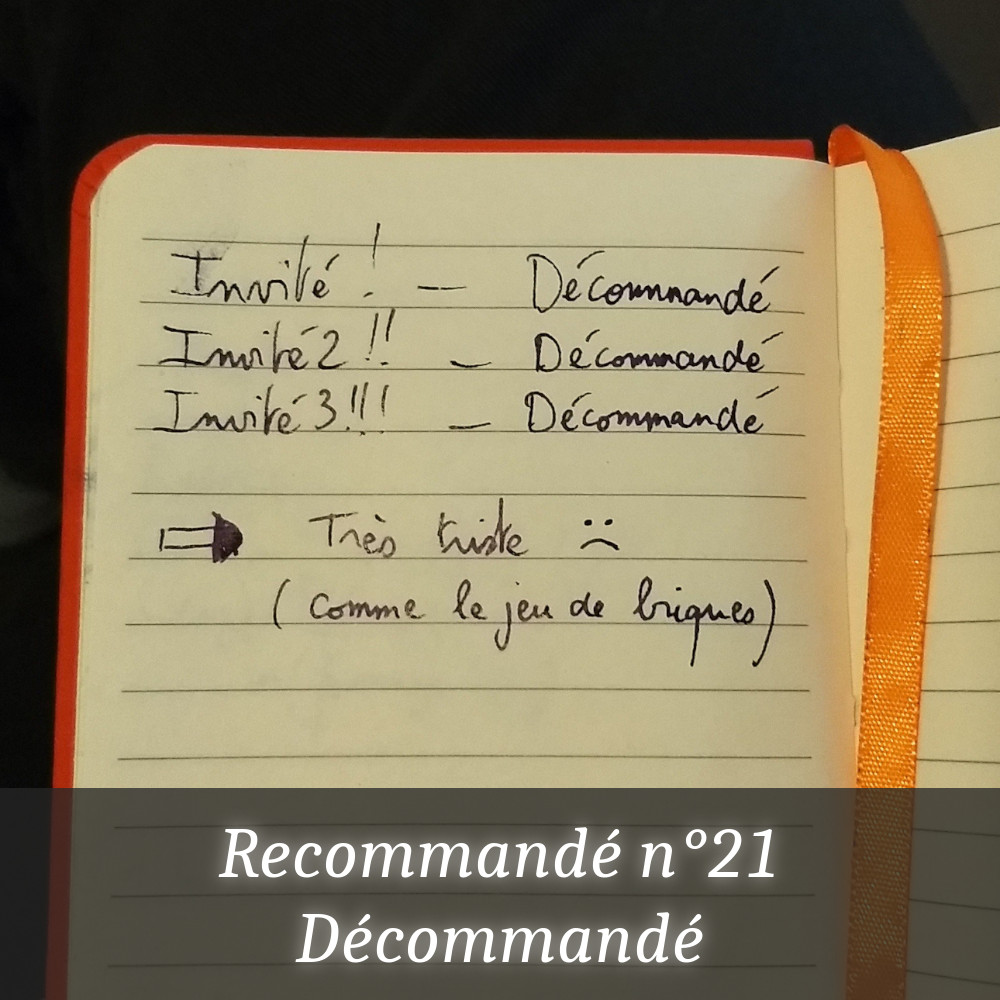 Invité ! — Décommandé
Invité 2 !! — Décommandé
Invité 3 !!! — Décommandé
Très triste :(
(comme le jeu de briques)
Recommandé n°21
Décommandé